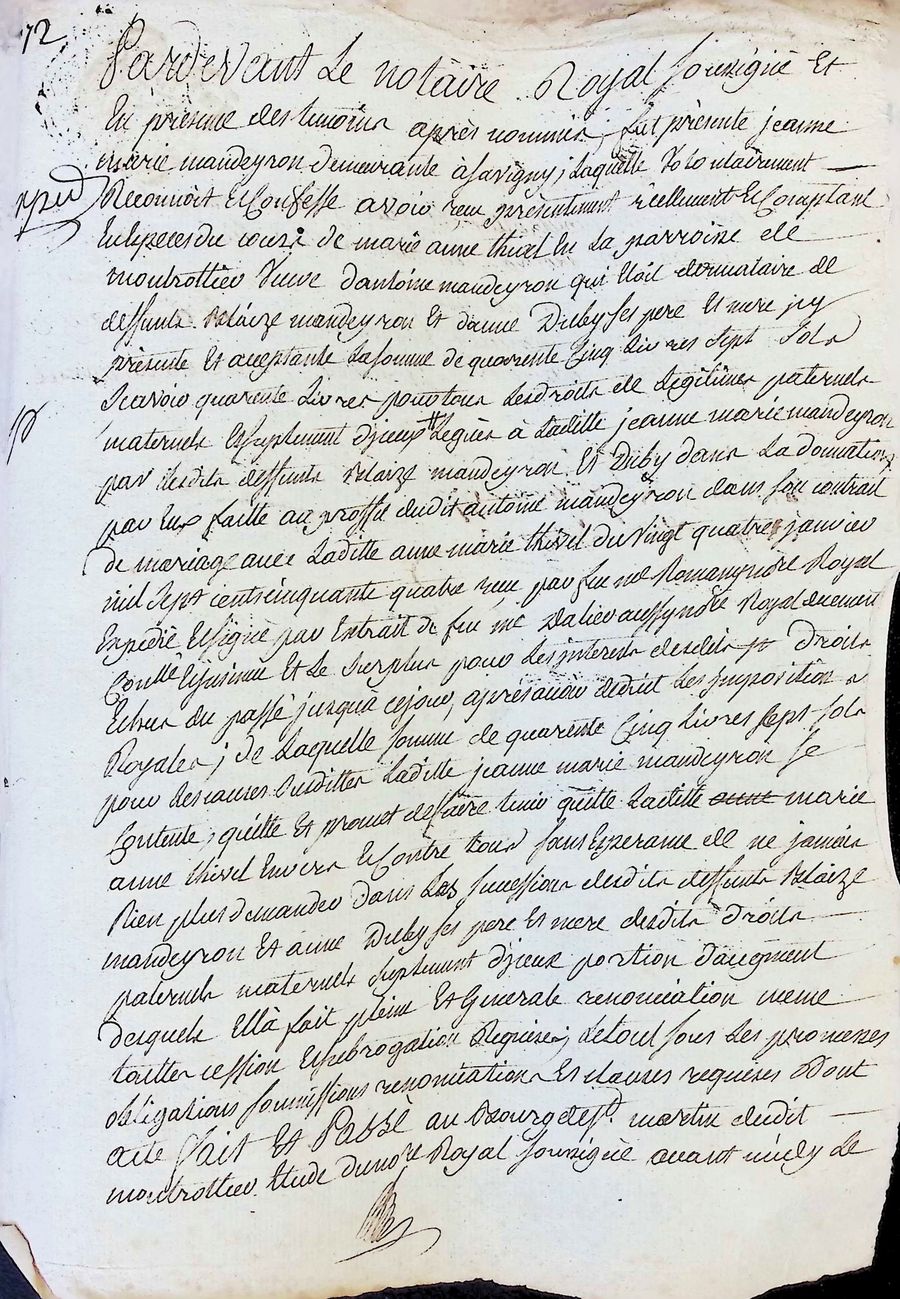 72
Pardevant Le notaire Royal soussigné Et
En présence des temoins après nommés, fut présente jeanne
marie mandeyron demeurante à Savigny, Laquelle volontairement
Reconnoit Et Confesse avoir reçu présentement réellement Et Comptant
En especes du cours de marie anne thivel En La parroisse de
montrottier veuve d'antoine mandeyron qui étoit donnataire de
deffunts Blaize mandeyron Et d'anne Duby ses pere Et mere jcy
présente Et acceptante La somme de quarente Cinq Livres sept sols
Scavoir quarente Livres pour tous Les droits de Légitimes paternels
maternels Et suplement d'jceux Légués à Laditte jeanne marie mandeyron
par Lesdits deffunts Blaize mandeyron Et Duby dans La donnation
par Eux faitte au proffit dudit antoine mandeyron dans son contrait
de mariage avec Laditte anne marie thivel du vingt quatre janvier
mil sept cent cinquante quatre reçu par feu me Romany nore Royal
Expedié Et signé par Extrait de feu me Dalieu aussy nore Royal duement
Conllé Et jnsinué Et Le surplus pour Les jnterets desdits droits
Echus du passé jusquà cejour, après avoir deduit Les jmpositions
Royales; de Laquelle somme de quarente Cinq Livres sept sols
pour Les causes susdittes Laditte jeanne marie mandeyron se
Contente, quitte Et promet de faire tenir quitte Laditte marie
anne thivel Envers Et Contre tous sans Esperance de ne jamais
Rien plus demander dans Les successions desdits deffunts Blaize
mandeyron Et anne Duby ses pere Et mere desdits droits
paternels maternels suplement d'jceux portion daugment
desquels Ellà fait pleine Et Generale renonciation meme
toutte cession Et subrogation Requise; Le tout sous Les promesses
obligations soumissions renonciations Et clauses requises Dont
acte fait Et Passé au Bourg de St martin dudit
montrottier Etude du nore Royal soussigné avant midy Le